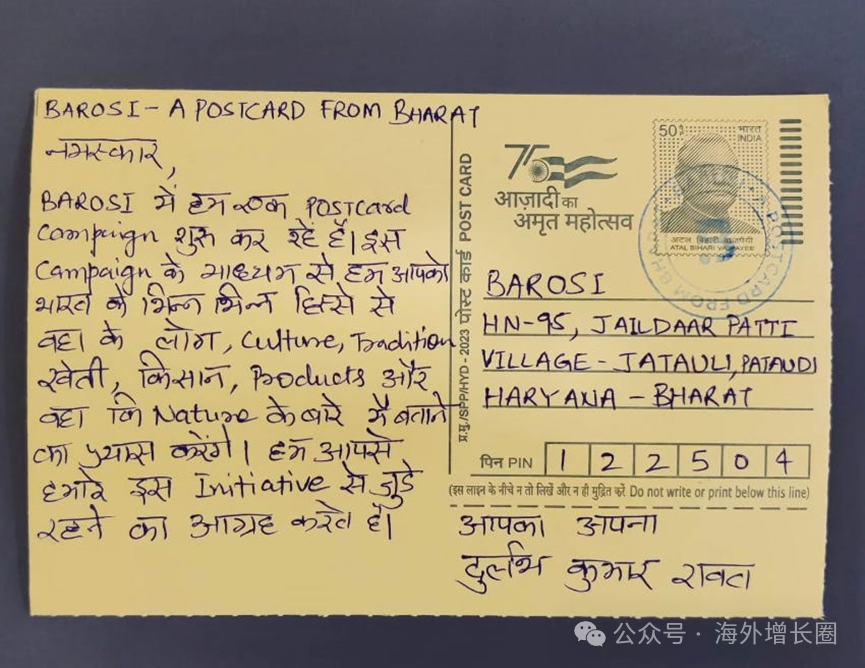 BAROSI - A POSTCARD FROM BHARAT
नमस्कार,
BAROSI में हम एक Postcard
Campaign शुरू कर रहें हैं। इस
Campaign के माध्यम से हम आपको
भारत के भिन्न भिन्न हिस्से से
वहा के लोग, Culture, Tradition
खेती, किसान, Products और
वहा कि Nature के बारे में बताने
का प्रयास करेंगे। हम आपसे
हमारे इस Initiative से जुड़े
रहने का आग्रह करते हैं।
प्र.मु./SPP/HYD - 2023 पोस्ट कार्ड POST CARD
75
आज़ादी का
अमृत महोत्सव
50
भारत
INDIA
अटल बिहारी वाजपेयी
ATAL BIHARI VAJPAYEE
A POSTCARD FROM BHARAT
BAROSI
HN-95, JAILDAAR PATTI
VILLAGE - JATAULI, PATAUDI
HARYANA - BHARAT
पिन PIN 1 2 2 5 0 4
(इस लाइन के नीचे न तो लिखें और न ही मुद्रित करें Do not write or print below this line)
आपका अपना
दुर्लभ कुमार रावत
公众号 · 海外增长圈